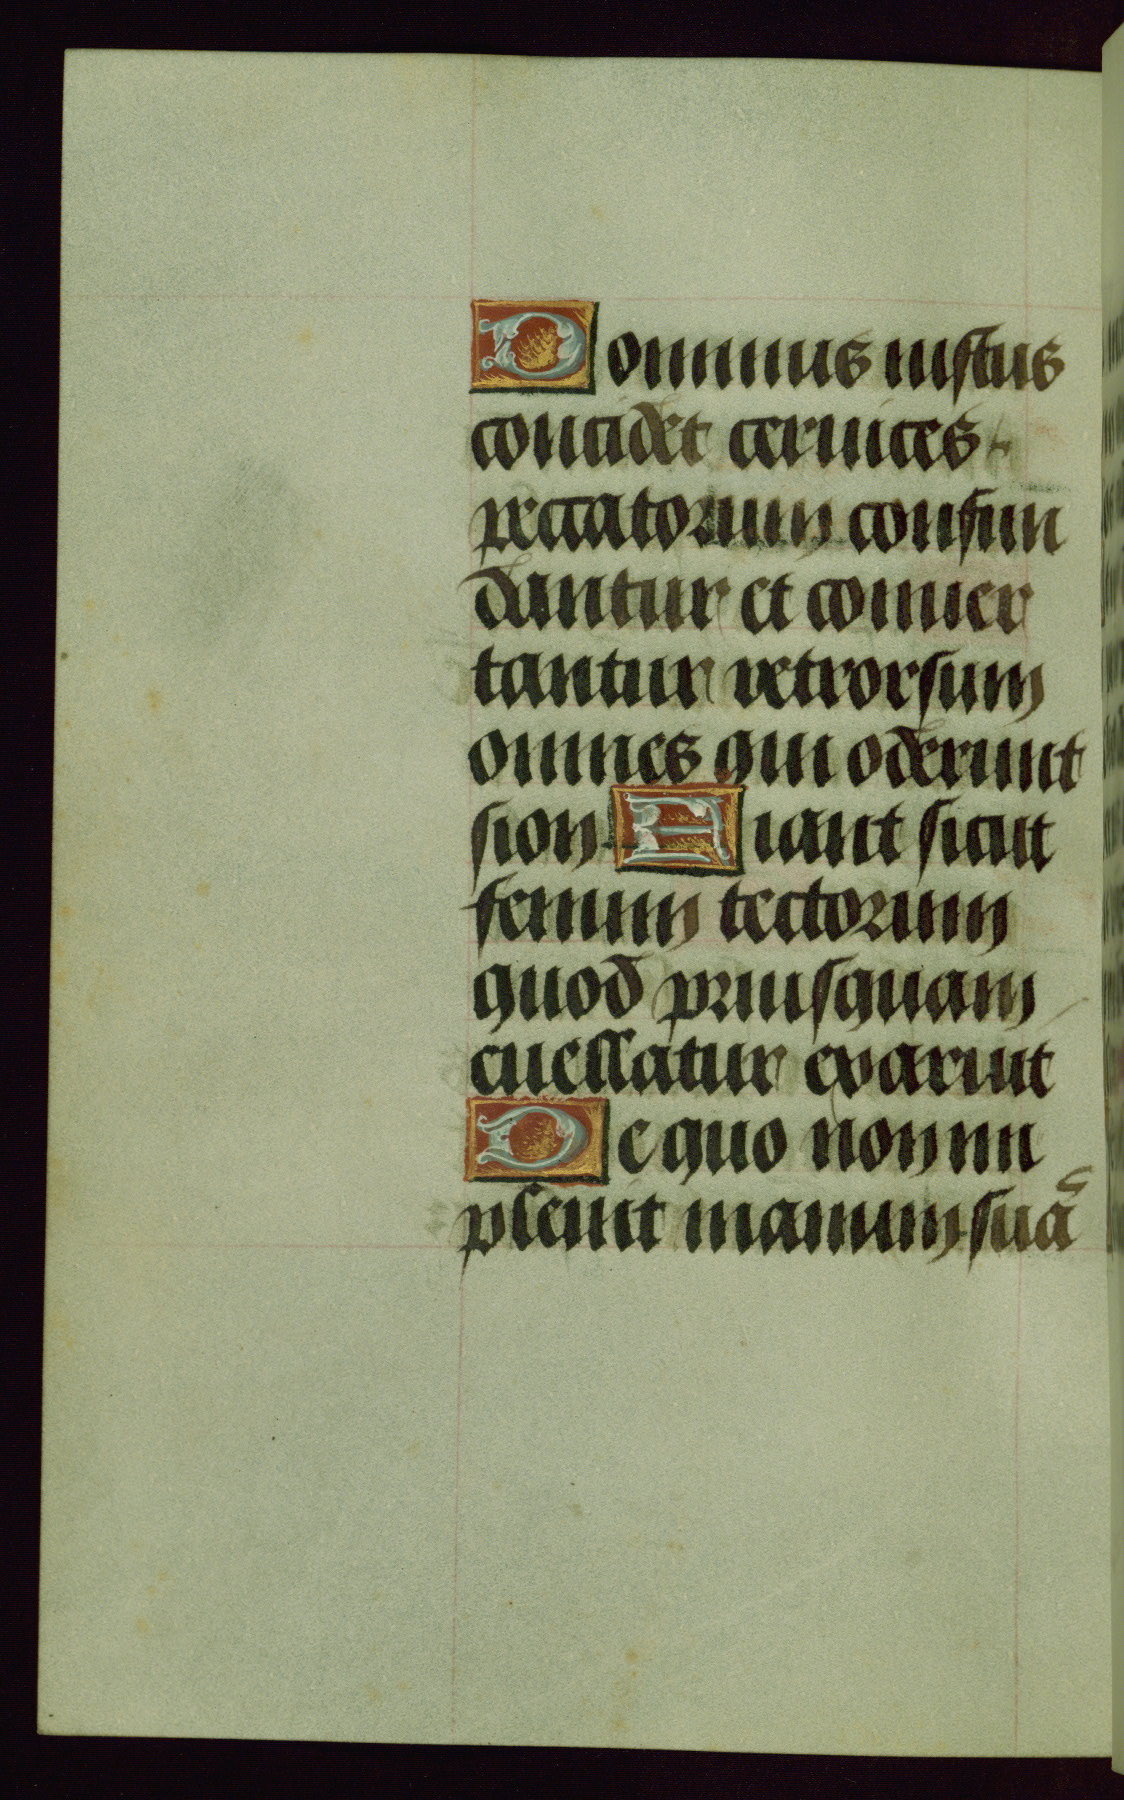 Dominus iustus
concidet ceruices
peccatorum confun
dantur et conuer
tantur retrorsum
omnes qui oderunt
sion Fiant sicut
fenum tectorum
quod priusquam
euellatur exaruit
De quo non im
pleuit manum suā